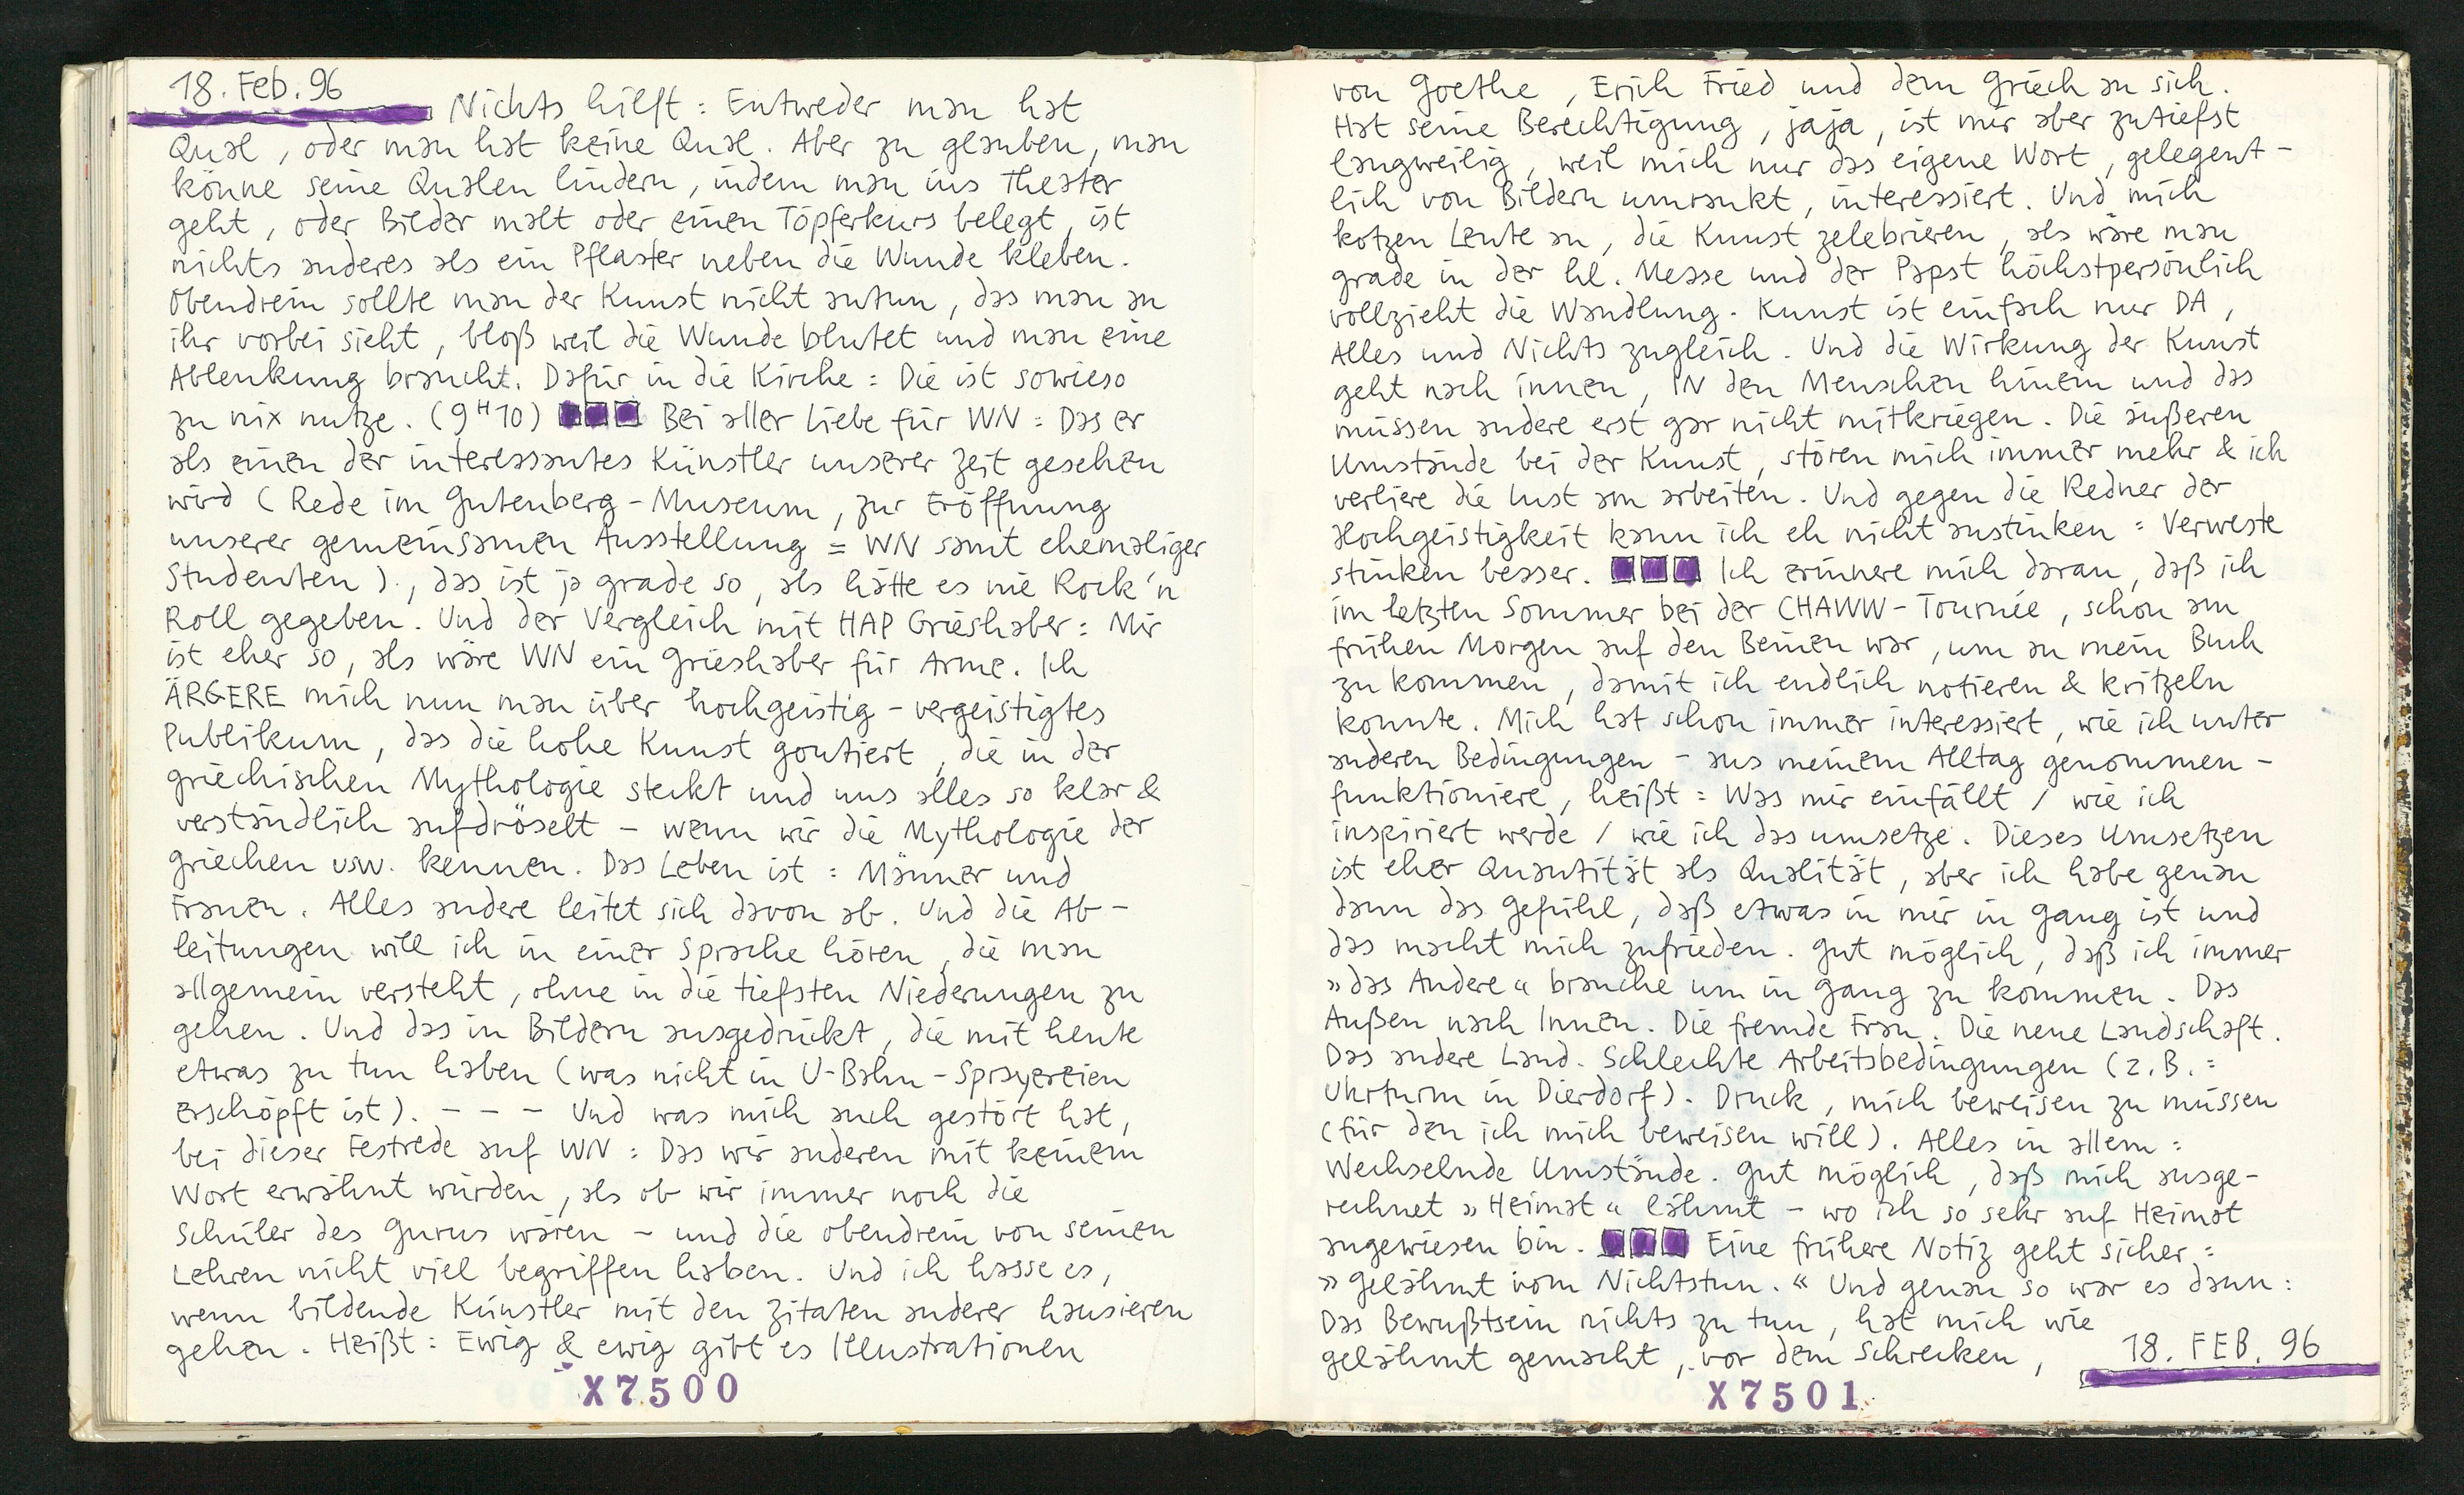 18. Feb. 96
Nichts hilft : Entweder man hat
Qual , oder man hat keine Qual . Aber zu glauben , man
könne seine Qualen lindern , indem man ins Theater
geht , oder Bilder malt oder einen Töpferkurs belegt , ist
nichts anderes als ein Pflaster neben die Wunde kleben .
Obendrein sollte man der Kunst nicht antun , das man an
ihr vorbei sieht , bloß weil die Wunde blutet und man eine
Ablenkung braucht . Dafür in die Kirche : Die ist sowieso
zu nix nutze . ( 9 H 10 ) Bei aller Liebe für WN : Das er
als einen der interessantes Künstler unserer Zeit gesehen
wird ( Rede im Gutenberg - Museum , zur Eröffnung
unserer gemeinsamen Ausstellung = WN samt ehemaliger
Studenten ) . , das ist ja grade so , als hätte es nie Rock'n
Roll gegeben . Und der Vergleich mit HAP Grieshaber : Mir
ist eher so , als wäre WN ein Grieshaber für Arme . Ich
ÄRGERE mich nun man über hochgeistig - vergeistigtes
Publikum , das die hohe Kunst goutiert , die in der
griechischen Mythologie steckt und uns alles so klar &
verständlich aufdröselt - wenn wir die Mythologie der
Griechen usw. kennen . Das Leben ist : Männer und
Frauen . Alles andere leitet sich davon ab . Und die Ab -
leitungen will ich in einer Sprache hören , die man
allgemein versteht , ohne in die tiefsten Niederungen zu
gehen . Und das in Bildern ausgedrückt , die mit heute
etwas zu tun haben ( was nicht in U-Bahn - Sprayereien
erschöpft ist ) . - - - Und was mich auch gestört hat ,
bei dieser Festrede auf WN : Das wir anderen mit keinem
Wort erwähnt würden , als ob wir immer noch die
Schüler des Gurus wären - und die obendrein von seinen
Lehren nicht viel begriffen haben . Und ich hasse es ,
wenn bildende Künstler mit den Zitaten anderer hausieren
gehen . Heißt : Ewig & ewig gibt es Illustrationen
X7500
von Goethe , Erich Fried und dem Griech an sich .
Hat seine Berechtigung , jaja , ist mir aber zutiefst
langweilig , weil mich nur das eigene Wort , gelegent -
lich von Bildern umrankt , interessiert . Und mich
kotzen Leute an , die Kunst zelebrieren , als wäre man
grade in der hl. Messe und der Papst höchstpersönlich
vollzieht die Wandlung . Kunst ist einfach nur DA ,
Alles und Nichts zugleich . Und die Wirkung der Kunst
geht nach innen , IN den Menschen hinein und das
müssen andere erst gar nicht mitkriegen . Die äußeren
Umstände bei der Kunst , stören mich immer mehr & ich
verliere die Lust am arbeiten . Und gegen die Redner der
Hochgeistigkeit kann ich eh nicht anstinken : Verweste
stinken besser . Ich erinnere mich daran , daß ich
im letzten Sommer bei der CHAWW - Tournée , schon am
frühen Morgen auf den Beinen war , um an mein Buch
zu kommen , damit ich endlich notieren & kritzeln
konnte . Mich hat schon immer interessiert , wie ich unter
anderen Bedingungen - aus meinem Alltag genommen -
funktioniere , heißt : Was mir einfällt / wie ich
inspiriert werde / wie ich das umsetze . Dieses Umsetzen
ist eher Quantität als Qualität , aber ich habe genau
dann das Gefühl , daß etwas in mir in Gang ist und
das macht mich zufrieden . Gut möglich , daß ich immer
» das Andere « brauche um in Gang zu kommen . Das
Außen nach Innen . Die fremde Frau . Die neue Landschaft .
Das andere Land . Schlechte Arbeitsbedingungen ( z.B. :
Uhrturm in Dierdorf ) . Druck , mich beweisen zu müssen
( für den ich mich beweisen will ) . Alles in allem :
Wechselnde Umstände . Gut möglich , daß mich ausge -
rechnet » Heimat « lähmt - wo ich so sehr auf Heimat
angewiesen bin . Eine frühere Notiz geht sicher :
» Gelähmt vom Nichtstun . « Und genau so war es dann :
Das Bewußtsein nichts zu tun , hat mich wie
gelähmt gemacht , vor dem Schrecken ,
18. FEB. 96
X7501